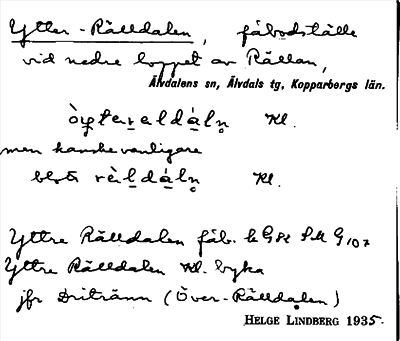 Ytter-Rälldalen, fäbodställe
vid nedre loppet av Rällan,
Älvdalens sn, Älvdals tg, Kopparbergs län.
Kl.
men kanske vanligare
blott Kl.
Yttre Rälldalen fäb. k G82
Yttre Rälldalen Kl. byka
jfr (Över-Rälldalen)
HELGE LINDBERG 1935.